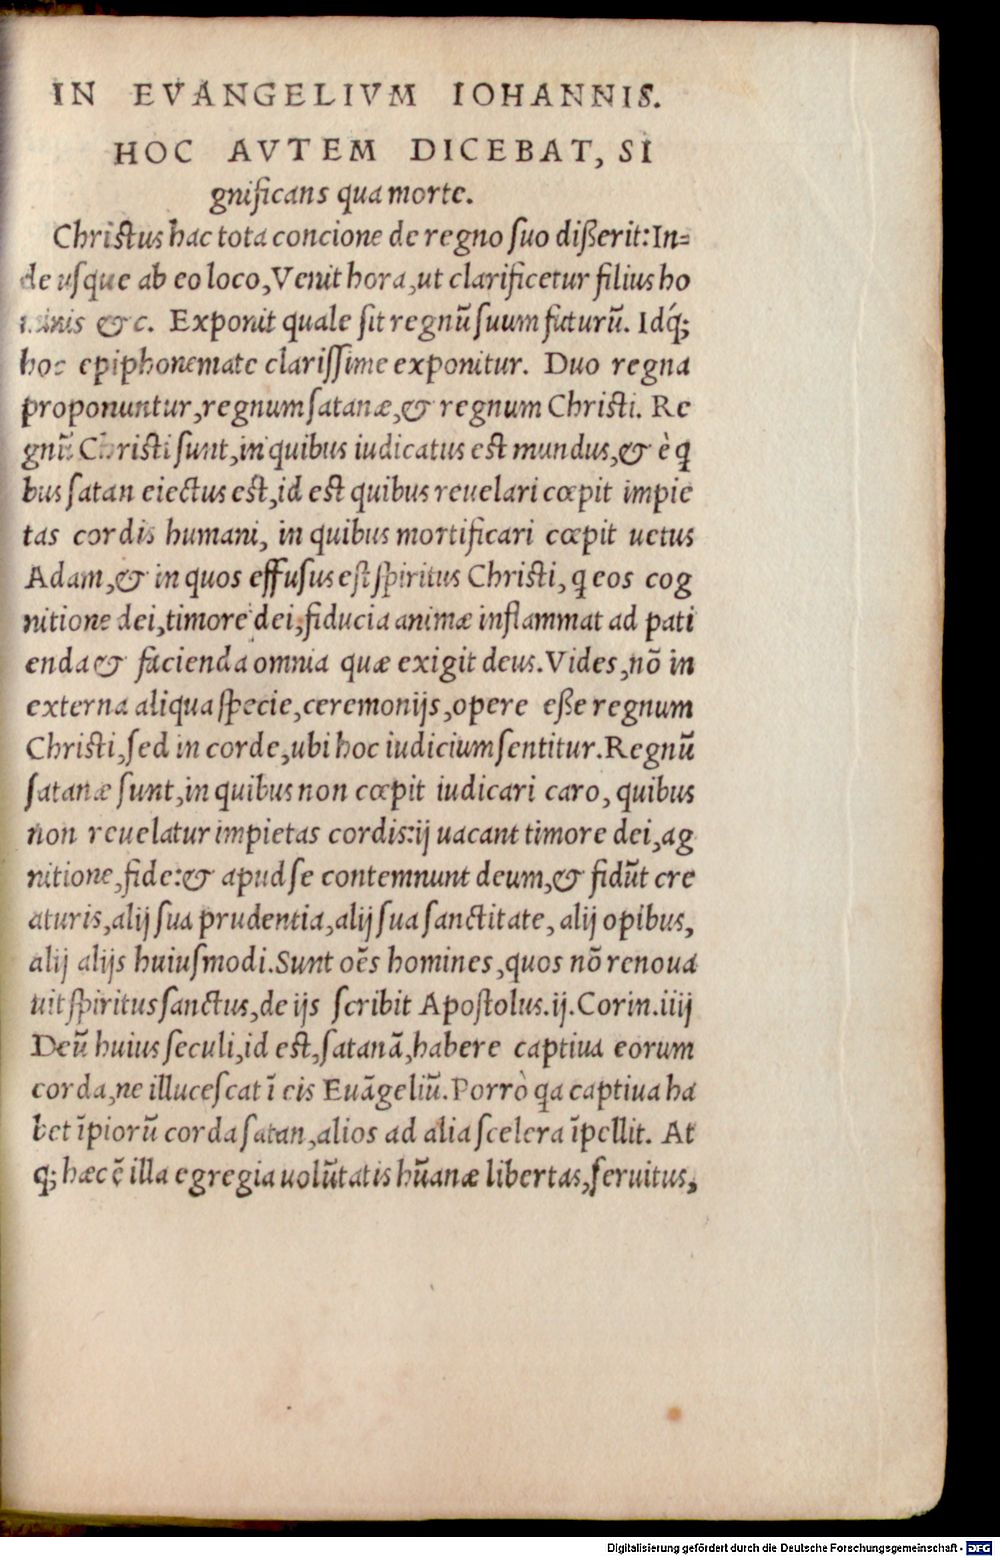 IN EVANGELIVM IOHANNIS.
HOC AVTEM DICEBAT, SI
gnificans qua morte.
Christus hac tota concione de regno ſuo dißerit: In=
de uſque ab eo loco, Venit hora, ut clarificetur filius ho
minis &c. Exponit quale ſit regnũ ſuum futurũ. Idq́;
hoc epiphonemate clariſſime exponitur. Duo regna
proponuntur, regnum ſatanæ, & regnum Chriſti. Re
gnũ Chriſti ſunt, in quibus iudicatus eſt mundus, & è q
bus ſatan eiectus eſt, id eſt quibus reuelari cœpit impie
tas cordis humani, in quibus mortificari cœpit uetus
Adam, & in quos effuſus eſt ſpiritus Chriſti, q eos cog
nitione dei, timore dei, fiducia animæ inflammat ad pati
enda & facienda omnia quæ exigit deus. Vides, nõ in
externa aliqua ſpecie, ceremonijs, opere eße regnum
Chriſti, ſed in corde, ubi hoc iudicium ſentitur. Regnũ
ſatanæ ſunt, in quibus non cœpit iudicari caro, quibus
non reuelatur impietas cordis: ij uacant timore dei, ag
nitione, fide: & apud ſe contemnunt deum, & fidũt cre
aturis, alij ſua prudentia, alij ſua ſanctitate, alij opibus,
alij alijs huiuſmodi. Sunt oẽs homines, quos nõ renoua
uit ſpiritus ſanctus, de ijs ſcribit Apoſtolus. ij. Corin. iiij
Deũ huius ſeculi, id eſt, ſatanã, habere captiua eorum
corda, ne illuceſcat ĩ eis Euãgeliũ. Porrò qa captiua ha
bet ĩpiorũ corda ſatan, alios ad alia ſcelera ĩpellit. At
q; hæc ẽ illa egregia uolũtatis hũanæ libertas, ſeruitus,
Digitalisierung gefördert durch die Deutsche Forschungsgemeinschaft - DFG